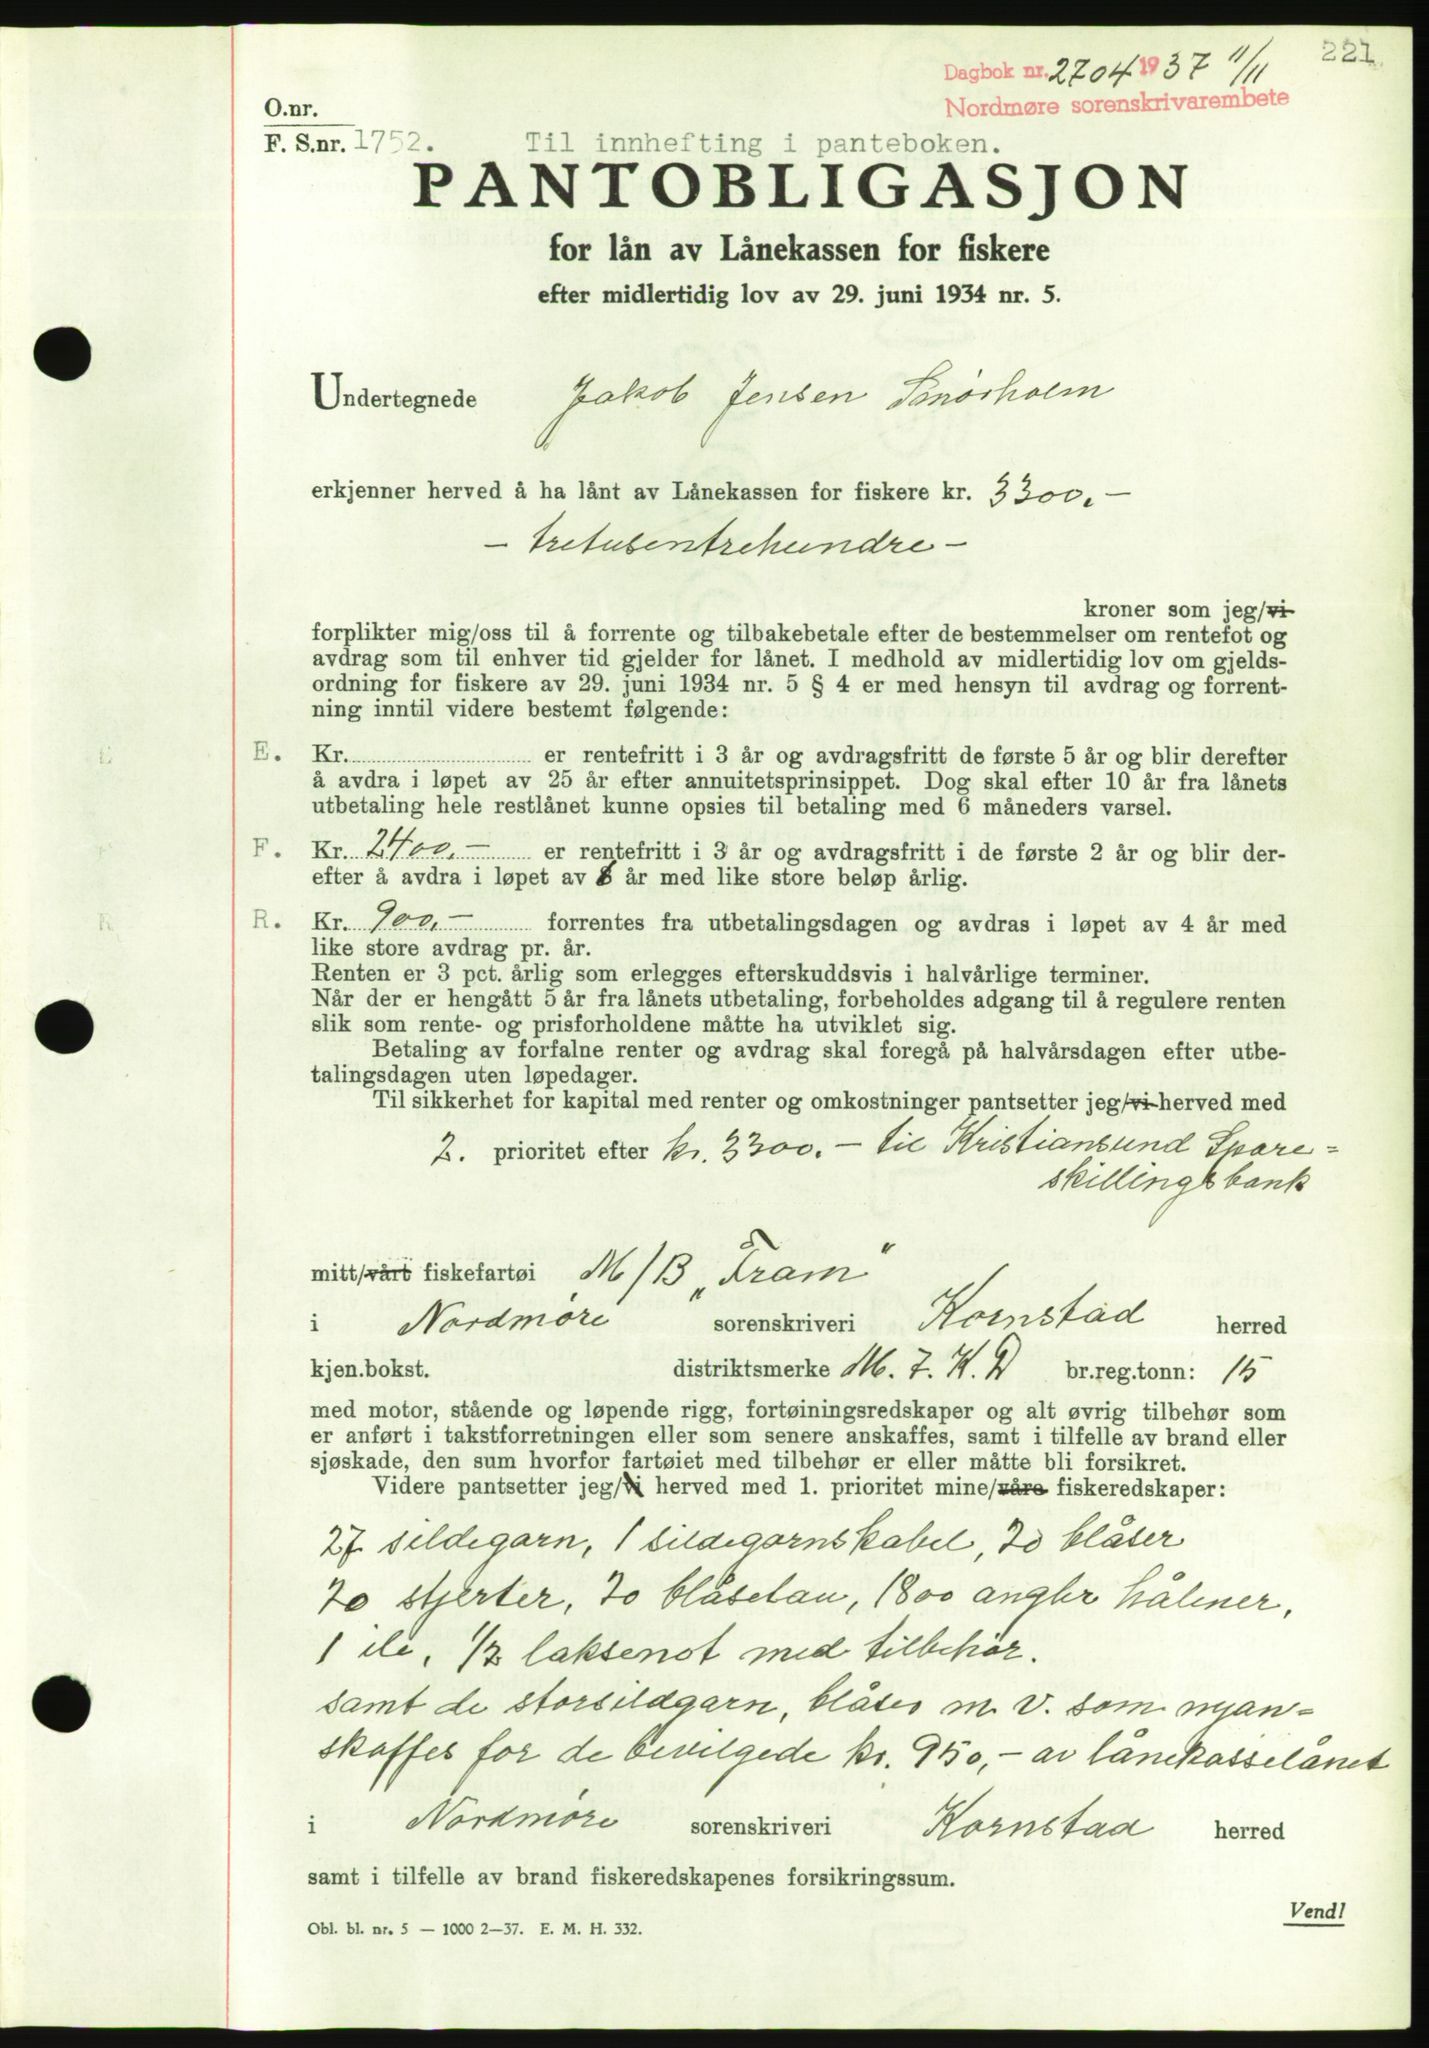 221
Dagbok nr. 2704 1937 11/11
Nordmøre sorenskrivarembete
O.nr.
F. S.nr. 1752. Til innhefting i panteboken.
PANTOBLIGASJON
for lån av Lånekassen for fiskere
efter midlertidig lov av 29. juni 1934 nr. 5.
Undertegnede Jakob Jensen Smørholm
erkjenner herved å ha lånt av Lånekassen for fiskere kr. 3300.—
— tretusentrehundre —
kroner som jeg/vi
forplikter mig/oss til å forrente og tilbakebetale efter de bestemmelser om rentefot og
avdrag som til enhver tid gjelder for lånet. I medhold av midlertidig lov om gjelds-
ordning for fiskere av 29. juni 1934 nr. 5 § 4 er med hensyn til avdrag og forrent-
ning inntil videre bestemt følgende:
E. Kr. er rentefritt i 3 år og avdragsfritt de første 5 år og blir derefter
å avdra i løpet av 25 år efter annuitetsprinsippet. Dog skal efter 10 år fra lånets
utbetaling hele restlånet kunne opsies til betaling med 6 måneders varsel.
F. Kr. 2400.— er rentefritt i 3 år og avdragsfritt i de første 2 år og blir der-
efter å avdra i løpet av år med like store beløp årlig.
R. Kr. 900.— forrentes fra utbetalingsdagen og avdras i løpet av 4 år med
like store avdrag pr. år.
Renten er 3 pct. årlig som erlegges efterskuddsvis i halvårlige terminer.
Når der er hengått 5 år fra lånets utbetaling, forbeholdes adgang til å regulere renten
slik som rente- og prisforholdene måtte ha utviklet sig.
Betaling av forfalne renter og avdrag skal foregå på halvårsdagen efter utbe-
talingsdagen uten løpedager.
Til sikkerhet for kapital med renter og omkostninger pantsetter jeg/vi herved med
2. prioritet efter kr. 3300.— til Kristiansund Spare=
skillingsbank
mitt/vårt fiskefartøi M/B „Fram“
i Nordmøre sorenskriveri Kornstad herred
kjen.bokst. distriktsmerke M. 7. K. D br.reg.tonn: 15
med motor, stående og løpende rigg, fortøiningsredskaper og alt øvrig tilbehør som
er anført i takstforretningen eller som senere anskaffes, samt i tilfelle av brand eller
sjøskade, den sum hvorfor fartøiet med tilbehør er eller måtte bli forsikret.
Videre pantsetter jeg/vi herved med 1. prioritet mine/våre fiskeredskaper:
27 sildegarn, 1 sildegarnskabel, 20 blåser
20 stjerter, 20 blåsetau, 1800 angler håliner,
1 ile, 1/2 laksenot med tilbehør.
samt de storsildgarn, blåser m. v. som nyan=
skaffes for de bevilgede kr. 950,— av lånekasselånet
i Nordmøre sorenskriveri Kornstad herred
samt i tilfelle av brand fiskeredskapenes forsikringssum.
Vend!
Obl. bl. nr. 5 — 1000 2—37. E. M. H. 332.